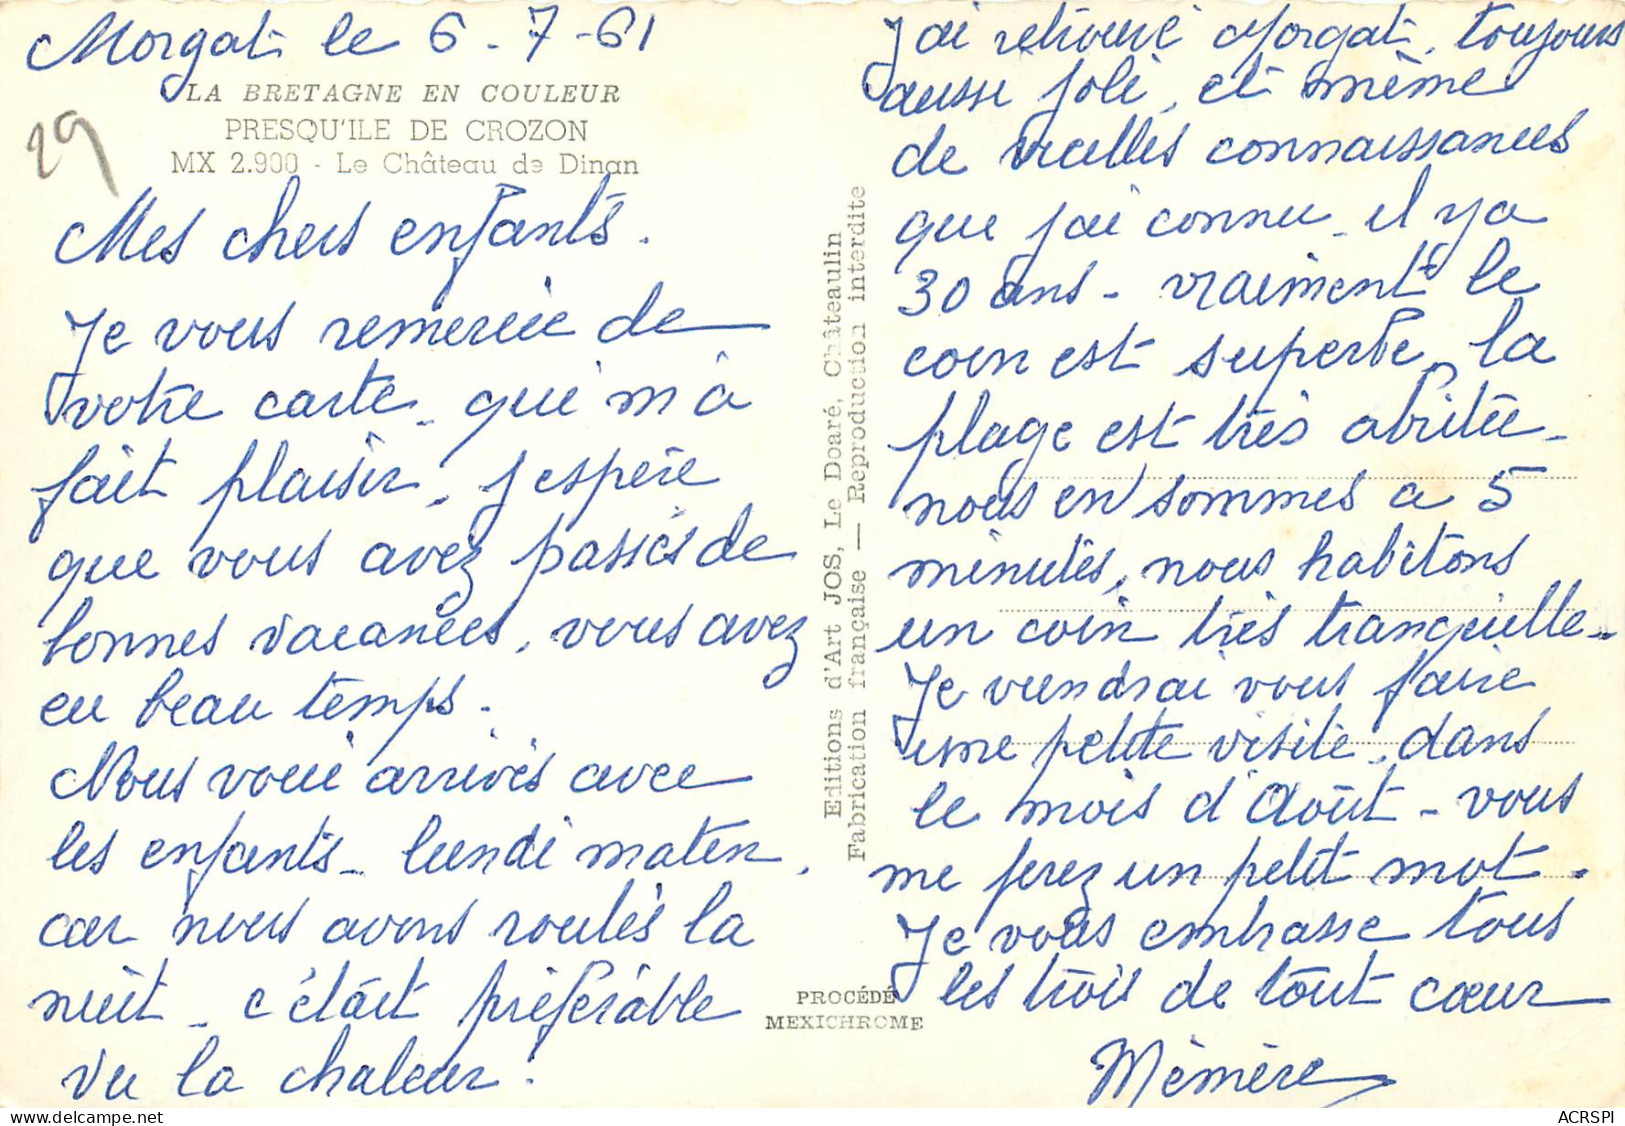 Morgat le 6-7-61
LA BRETAGNE EN COULEUR
PRESQU'ILE DE CROZON
MX 2.900 - Le Château de Dinan
29
Mes chers enfants.
Je vous remercie de
votre carte - qui m'a
fait plaisir, j'espère
que vous avez passés de
bonnes vacances, vous avez
eu beau temps.
Nous voici arrivés avec
les enfants - lundi matin,
car nous avons roulés la
nuit - c'était préférable
vu la chaleur.
Editions d'Art JOS, Le Doaré, Châteaulin
Fabrication française — Reproduction interdite
PROCÉDÉ
MEXICHROME
J'ai retrouvé Morgat, toujours
aussi joli, et même
de vieilles connaissances
que j'ai connu - il y a
30 ans - vraiment le
coin est superbe, la
plage est très abritée -
nous en sommes a 5
minutes, nous habitons
un coin très tranquille -
Je viendrai vous faire
une petite visite, dans
le mois d'Août - vous
me ferez un petit mot.
Je vous embrasse tous
les trois de tout cœur
Mémère
ACRSPI